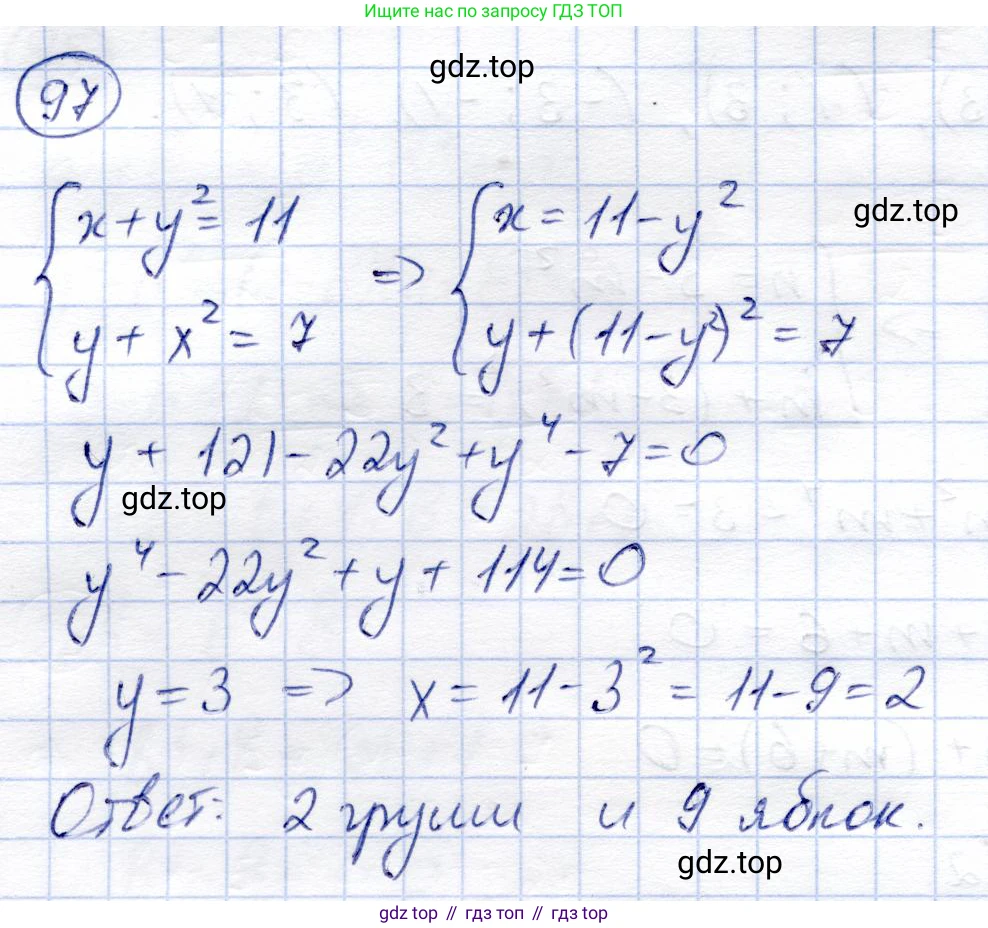 Ищите нас по запросу ГДЗ ТОП
gdz.top
97
x + y² = 11 => x = 11 - y²
gdz.top
y + x² = 7 y + (11 - y²)² = 7
y + 121 - 22y² + y⁴ - 7 = 0
gdz.top
y⁴ - 22y² + y + 114 = 0
y = 3 => x = 11 - 3² = 11 - 9 = 2
Ответ: 2 груши и 9 яблок.
gdz.top
gdz top // гдз топ // gdz top